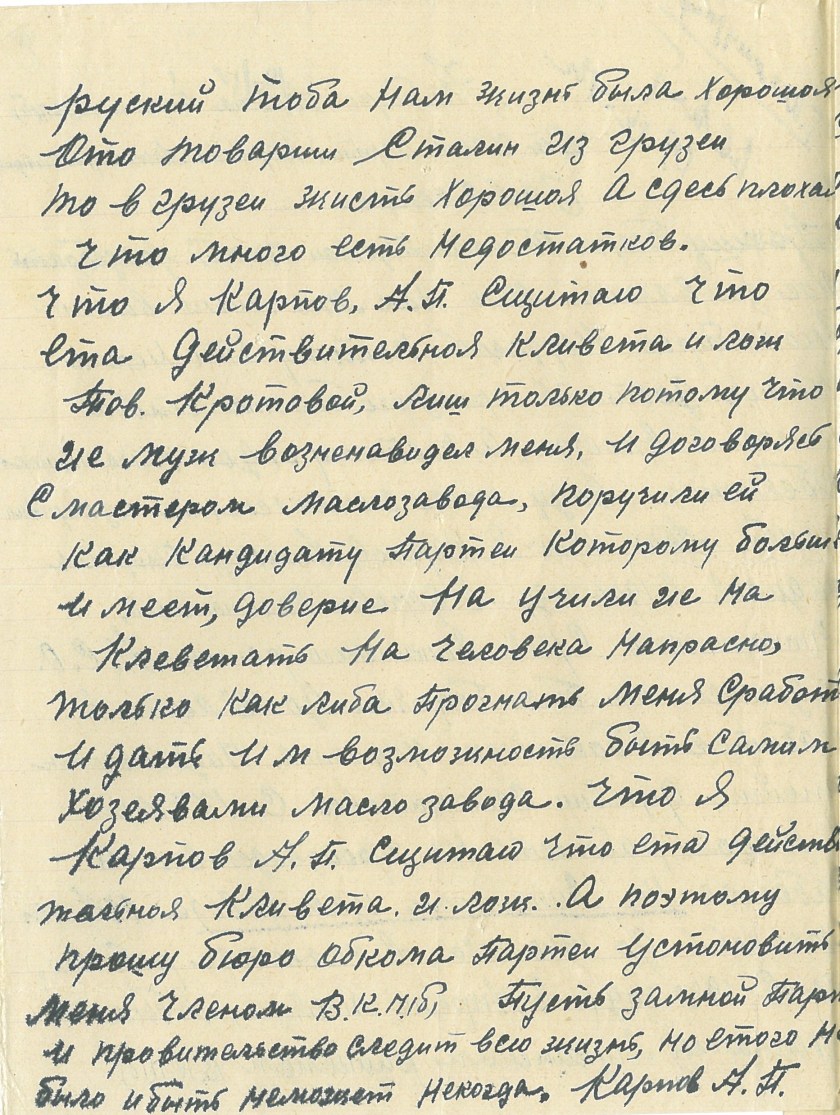 руский тоба нам жизнь была хорошая
Ото товарищ Сталин из грузеи
то в грузеи жисть хорошая а сдесь плохая
что много есть недостатков.
что я Карпов, А.П. Сщитаю что
ета действительноя кливета и лож
Тов. Кротовой, лиш только потому что
ие муж возненавидел меня, и договорясь
с мастером маслозавода, поручили ей
как кандидату партеи которому больше
имеет, доверие на учили ие на
клеветать на человека напрасно,
только как либа прогнать меня сработ
и дать им возможность быть самим
хозеявами масло завода. что я
Карпов А.П. Сщитаю что ета действи
тельноя кливета. и лож. А поэтому
прошу бюро обкома партеи установить
меня членом В.К.П.(б), Пусть замной парт
и провительство следит всю жизнь, но етого не
было и быть неможет некогда. Карпов А.П.